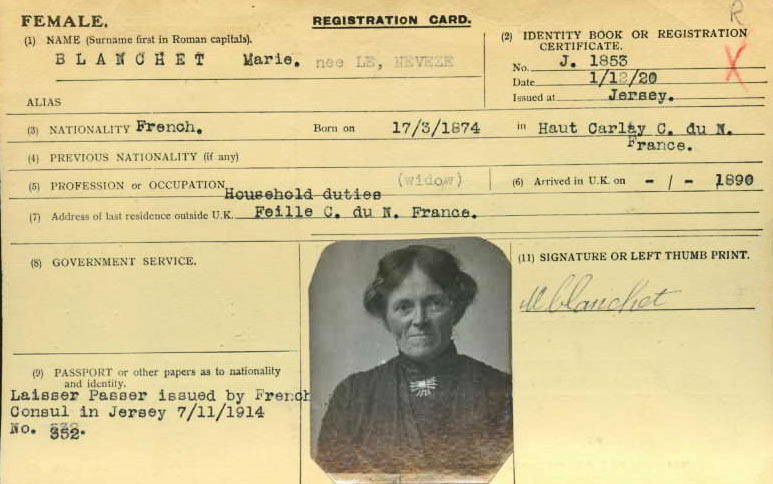 R
FEMALE.
REGISTRATION CARD.
(1) NAME (Surname first in Roman capitals).
BLANCHET Marie. nee LE, NEVEZE
ALIAS
(2) IDENTITY BOOK OR REGISTRATION
CERTIFICATE.
No. J. 1853
Date 1/12/20
Issued at Jersey.
X
(3) NATIONALITY French. Born on 17/3/1874 in Haut Carlay C. du N.
France.
(4) PREVIOUS NATIONALITY (if any)
(5) PROFESSION or OCCUPATION Household duties (widow)
(6) Arrived in U.K. on - / - 1890
(7) Address of last residence outside U.K. Feille C. du N. France.
(8) GOVERNMENT SERVICE.
(9) PASSPORT or other papers as to nationality
and identity.
Laisser Passer issued by French
Consul in Jersey 7/11/1914
No. 352.
(11) SIGNATURE OR LEFT THUMB PRINT.
M Blanchet